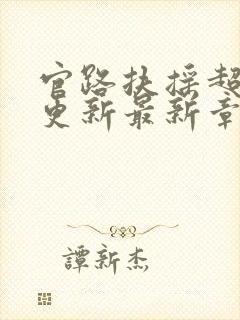 官路扶摇超
更新最新章
譚新杰